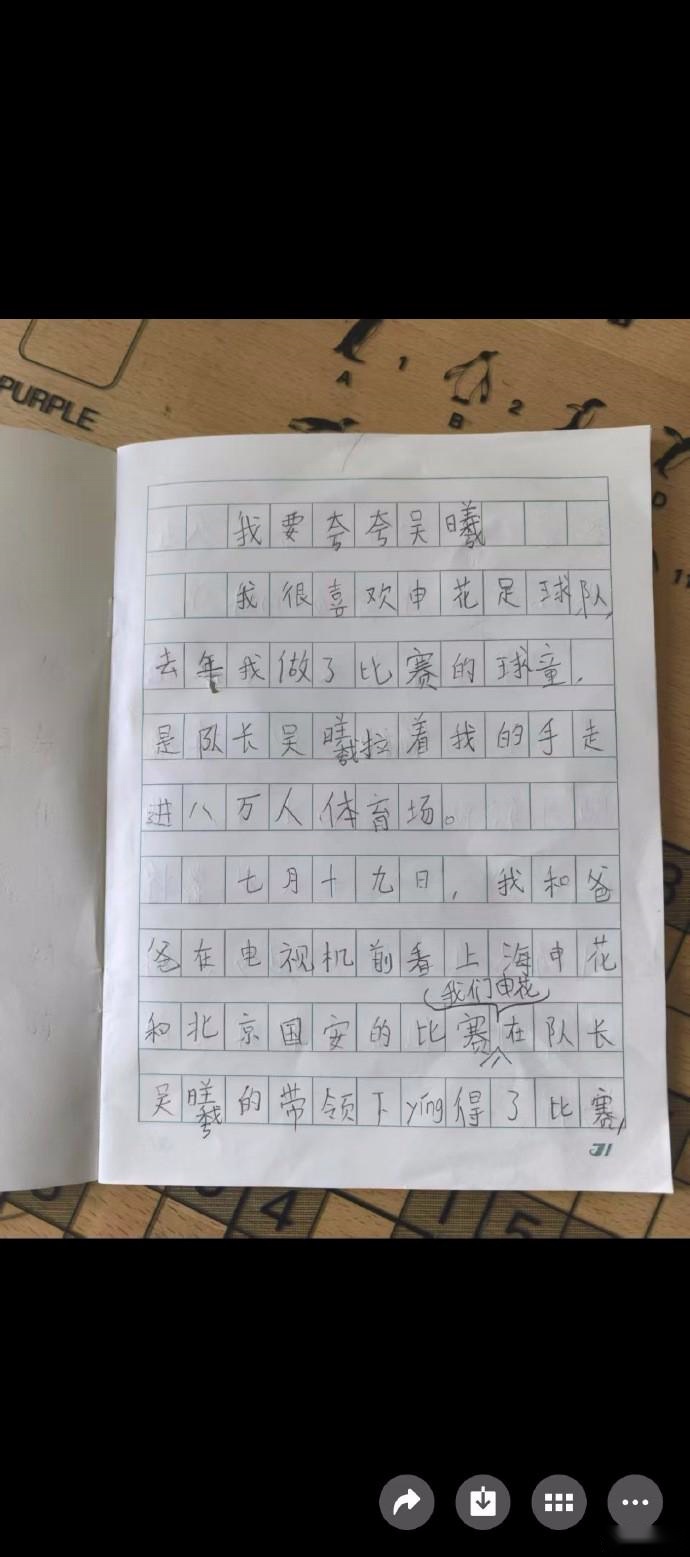 PURPLE
A 1
B 2
D
11
我要夸夸吴曦
我很喜欢申花足球队,
去年我做了比赛的球童,
是队长吴曦拉着我的手走
进八万人体育场。
七月十九日,我和爸
爸在电视机前看上海申花
我们申花
和北京国安的比赛在队长
吴曦的带领下ying得了比赛,
31
4
1
5